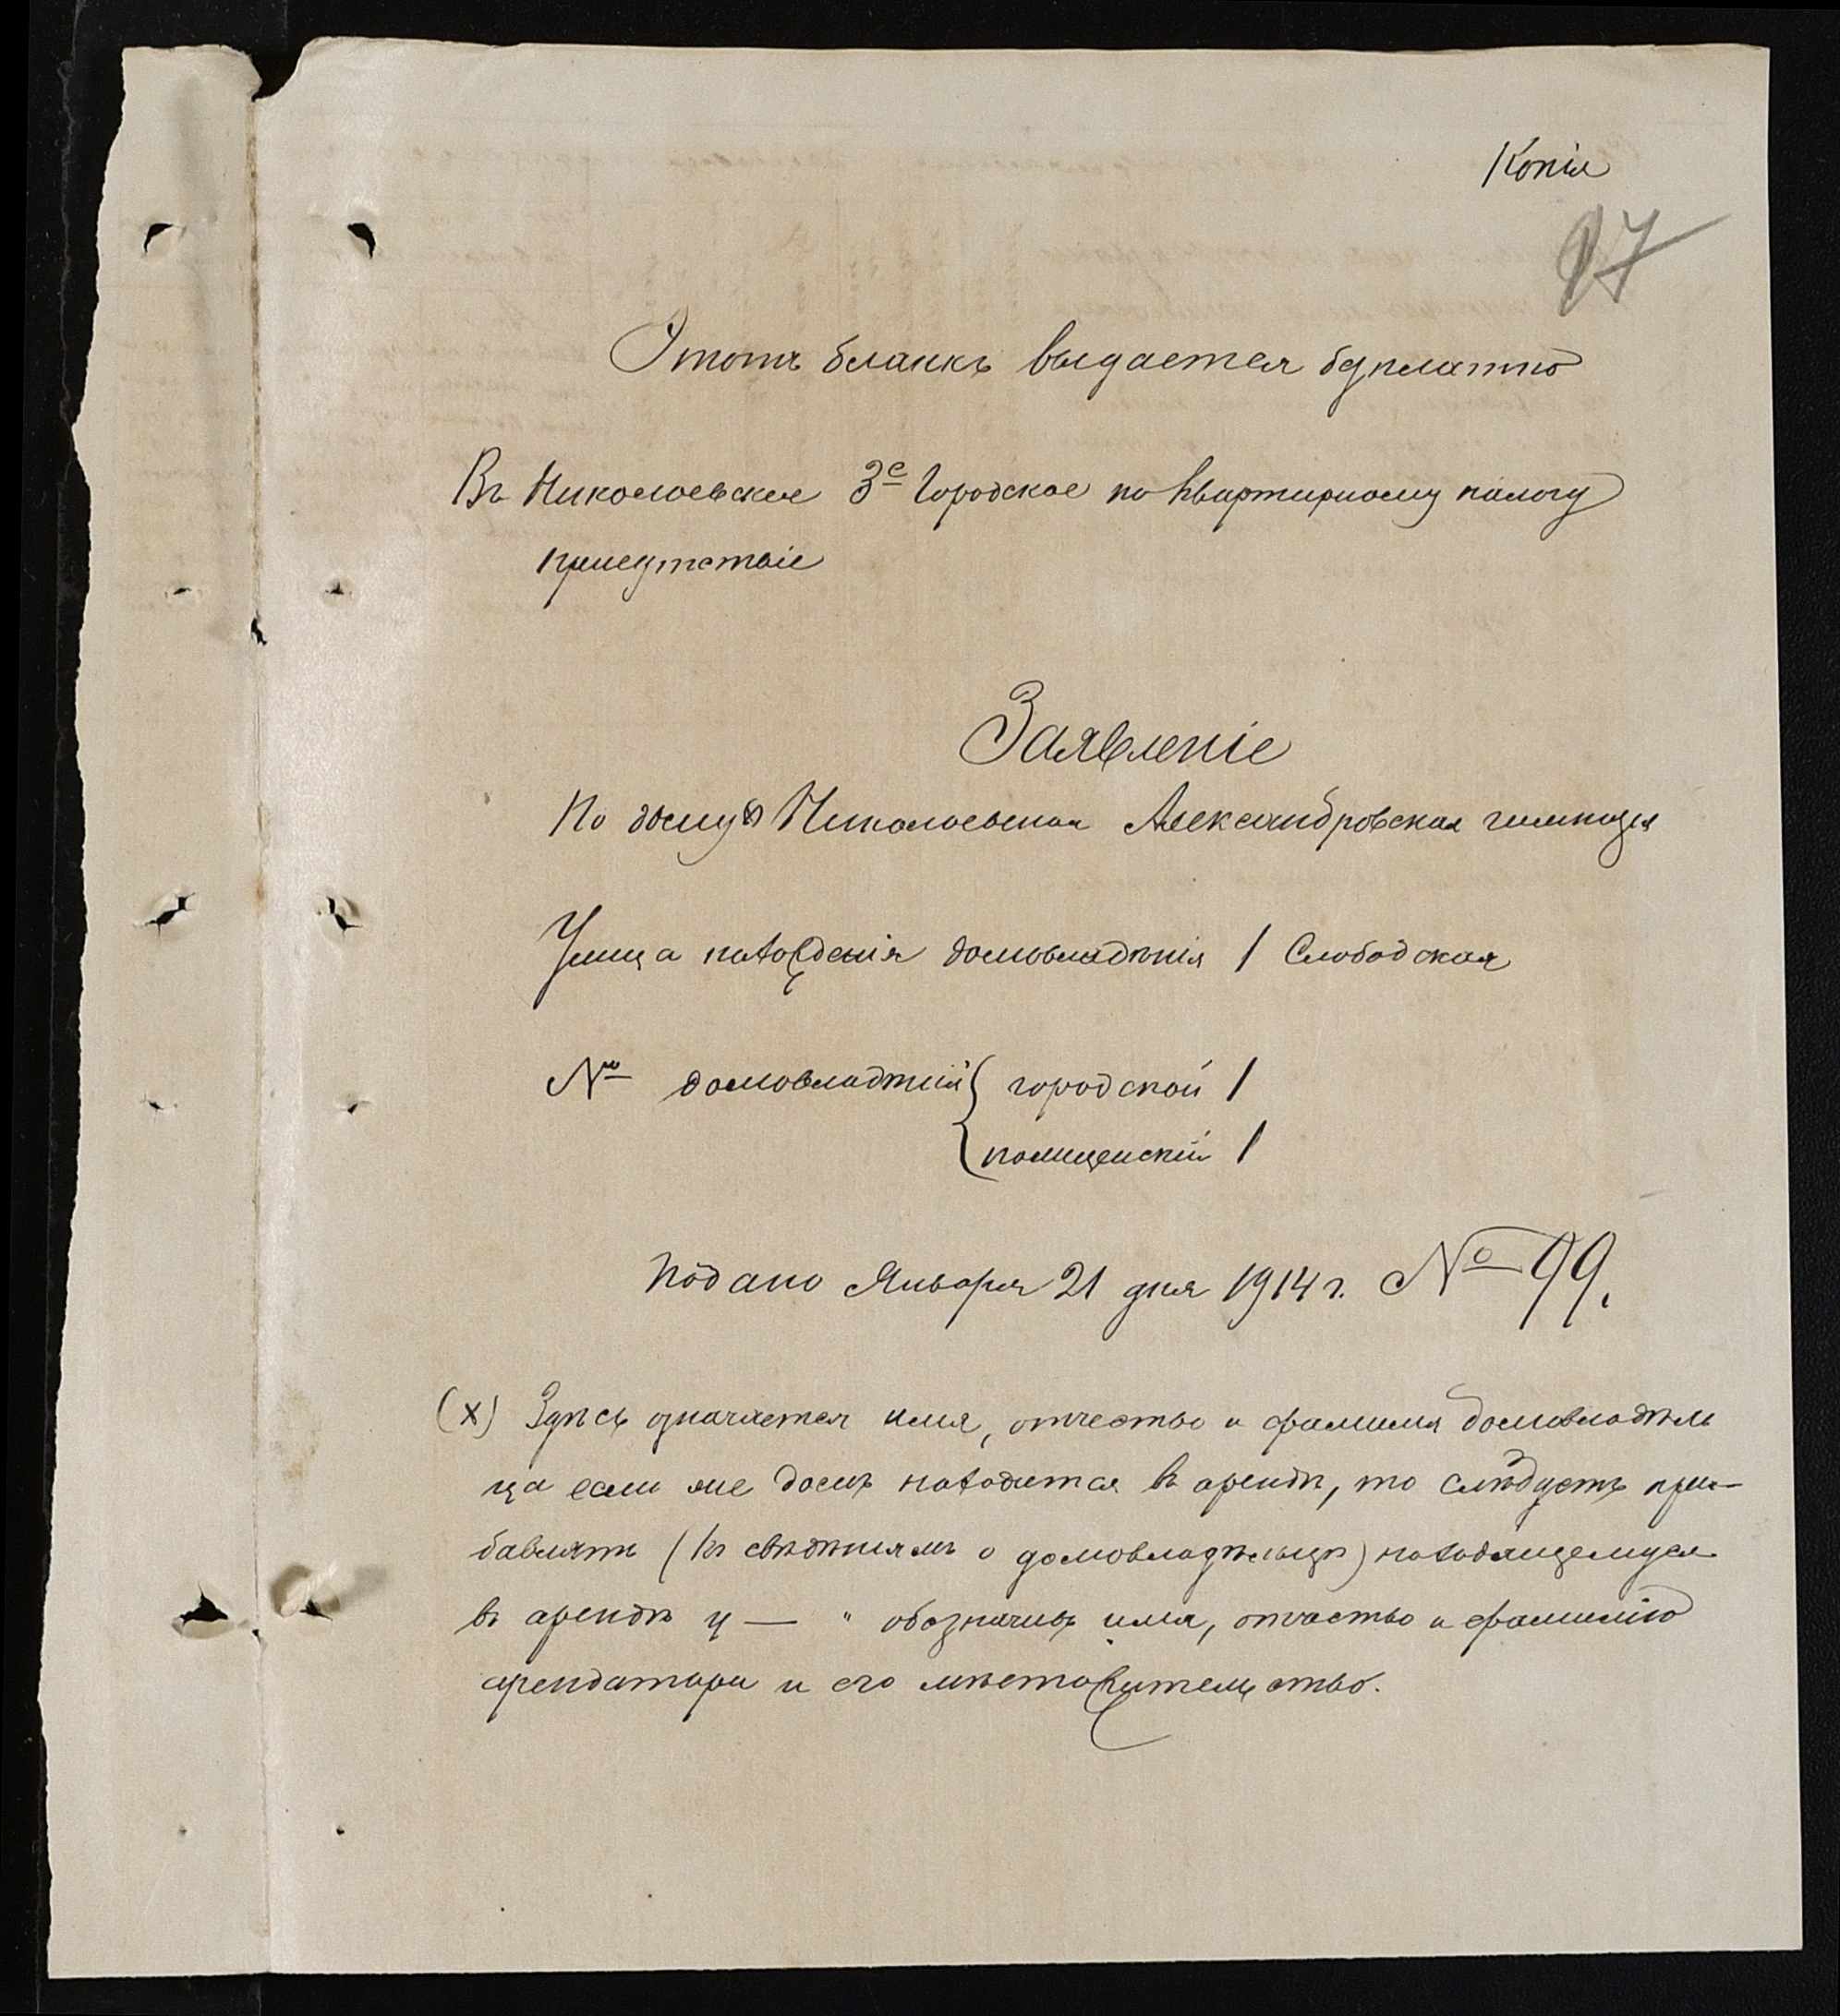 Копія
97
Этотъ бланкъ выдается безплатно
Въ Николаевское 3е Городское по квартирному налогу
присутствіе
Заявленіе
По дому (x) Николаевская Александровская гимназія
Улица нахожденія домовладѣнія / Слободская
№ домовладѣній { городской /
{ полицейскій /
Подано Января 21 дня 1914 г. № 99.
(x) Здѣсь означается имя, отчество и фамилия домовладѣль
ца если же домъ находится въ арендѣ, то слѣдуетъ при-
бавлять (къ свѣдѣниямъ о домовладѣльцѣ) находящемуся
въ арендѣ у — " обозначивъ имя, отчество и фамилію
арендатора и его мѣстожительство.